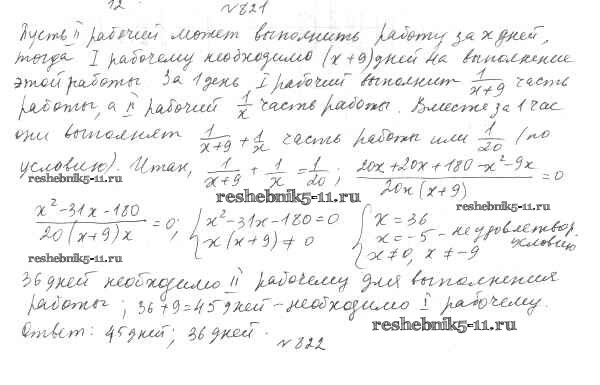 12.
№821
Пусть II рабочий может выполнить работу за x дней,
тогда I рабочему необходимо (x+9) дней на выполнение
этой работы. За 1 день I рабочий выполнит 1/(x+9) часть
работы, а II рабочий 1/x часть работы. Вместе за 1 час
они выполняет 1/(x+9) + 1/x часть работы или 1/20 (по
условию). Итак, 1/(x+9) + 1/x = 1/20; (20x+20x+180-x²-9x)/(20x(x+9)) = 0
reshebnik5-11.ru
reshebnik5-11.ru
(x²-31x-180)/(20(x+9)x) = 0; { x²-31x-180=0 { x=36
x(x+9)≠0 x=-5 - не удовлетвор. условию
x≠0, x≠-9
reshebnik5-11.ru
reshebnik5-11.ru
36 дней необходимо II рабочему для выполнения
работы; 36+9=45 дней - необходимо I рабочему.
reshebnik5-11.ru
Ответ: 45 дней; 36 дней.
№822